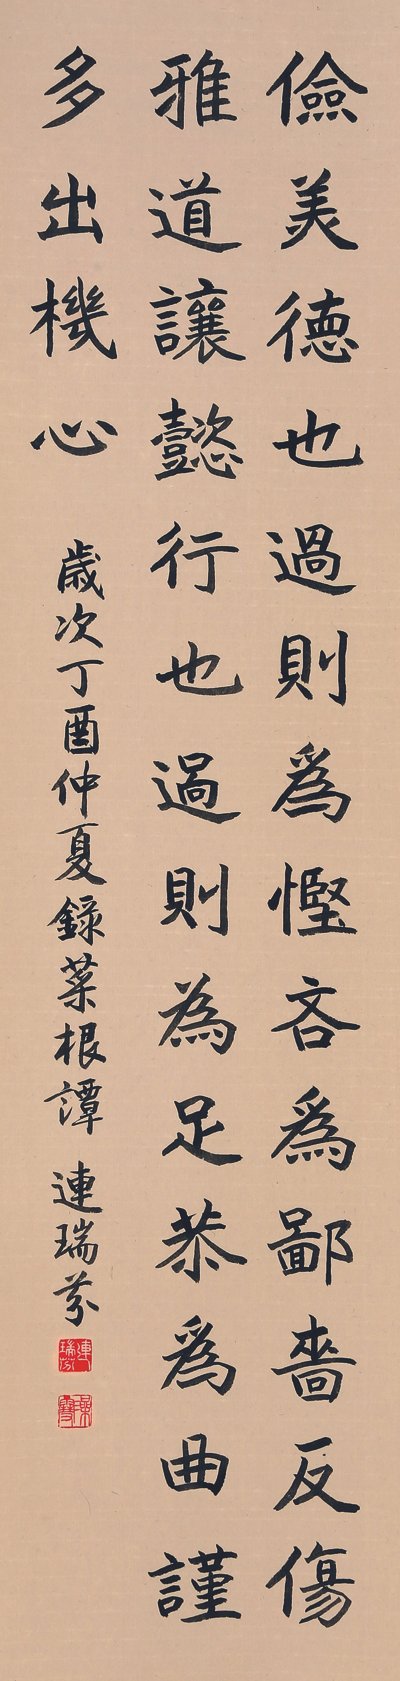 儉美德也過則為慳吝為鄙嗇反傷
雅道讓懿行也過則為足恭為曲謹
多出機心
歲次丁酉仲夏錄菜根譚 連瑞芬
連瑞芬